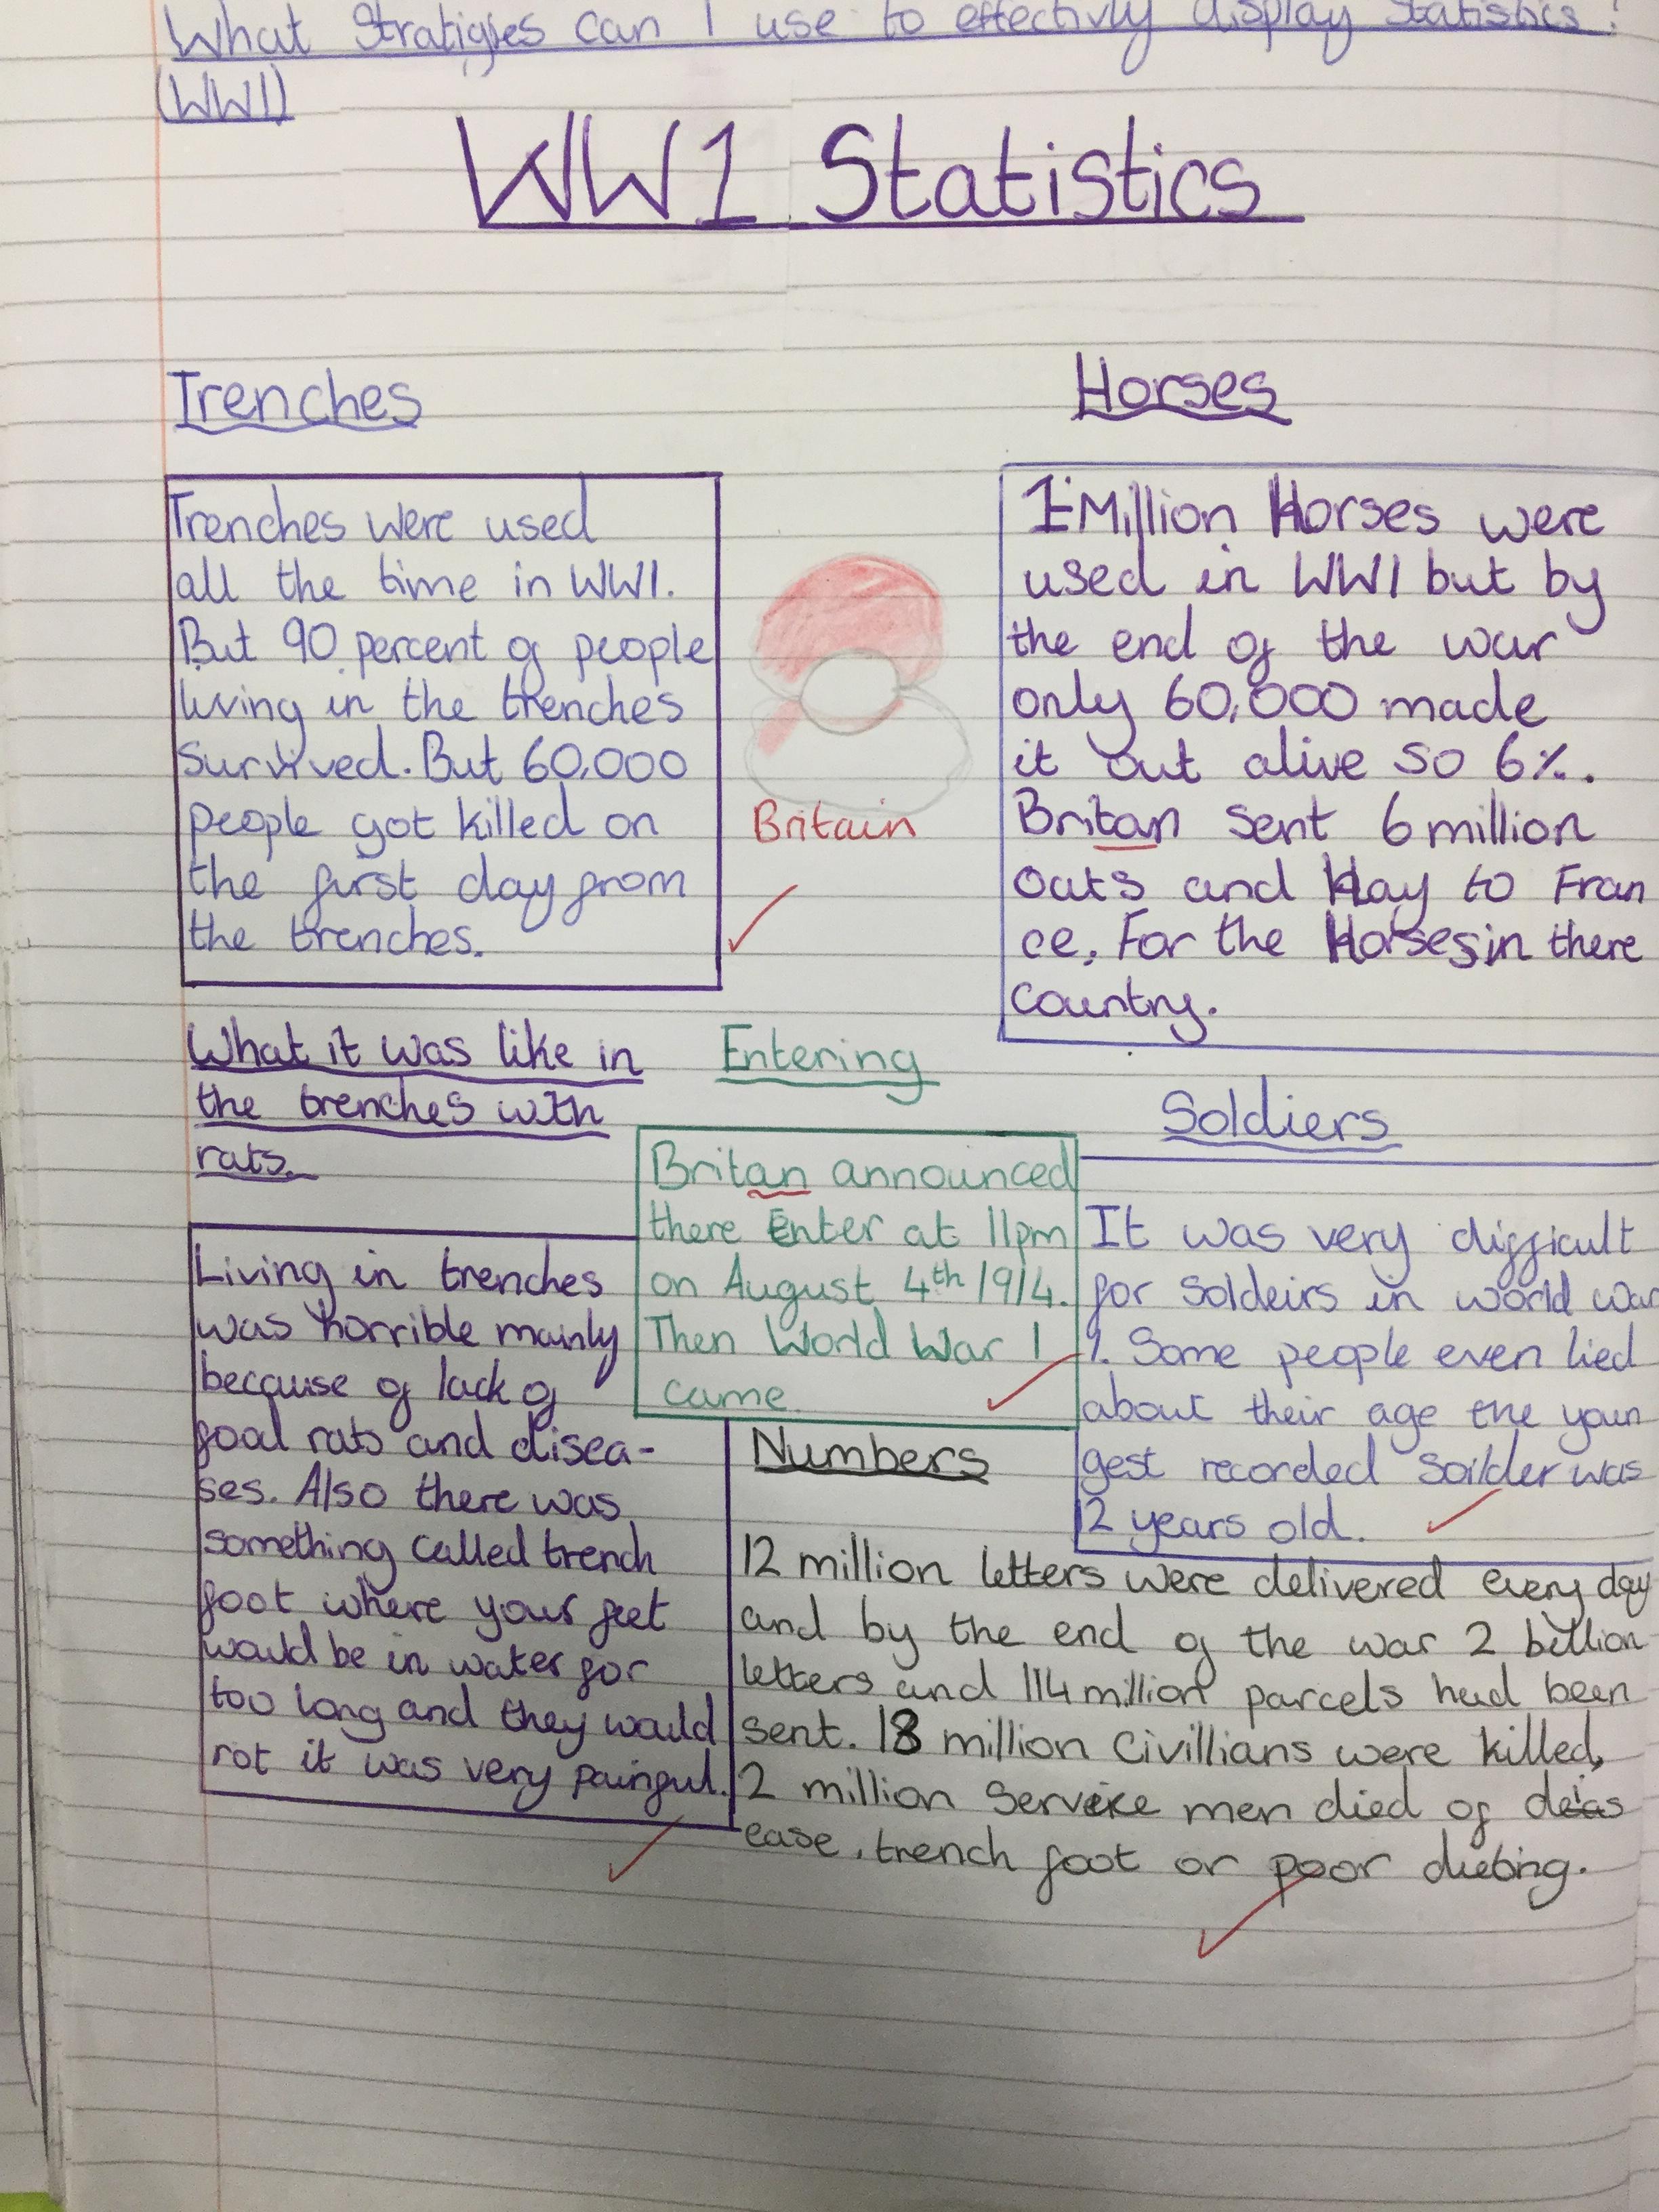 What Stratigies can I use to effectivly display Statistics?
(WW1)
WW1 Statistics
Trenches
Trenches were used
all the time in WW1.
But 90 percent of people
living in the trenches
survived. But 60,000
people got killed on
the first day from
the trenches.
Britain
Horses
1 Million Horses were
used in WW1 but by
the end of the war
only 60,000 made
it out alive so 6%.
Britan sent 6 million
oats and Hay to Fran
ce. For the Horses in there
country.
What it was like in
the trenches with
rats.
Living in trenches
was horrible mainly
because of lack of
food rats and disea-
ses. Also there was
something called trench
foot where your feet
would be in water for
too long and they would
rot it was very painful.
Entering
Britan announced
there Enter at 11pm
on August 4th 1914.
Then World War 1
came.
Soldiers
It was very difficult
for soldeirs in world war
1. Some people even lied
about their age the youn
gest recorded soilder was
12 years old.
Numbers
12 million letters were delivered every day
and by the end of the war 2 billion
letters and 114 million parcels had been
sent. 18 million Civillians were killed,
2 million Service men died of deias
ease, trench foot or poor dieting.